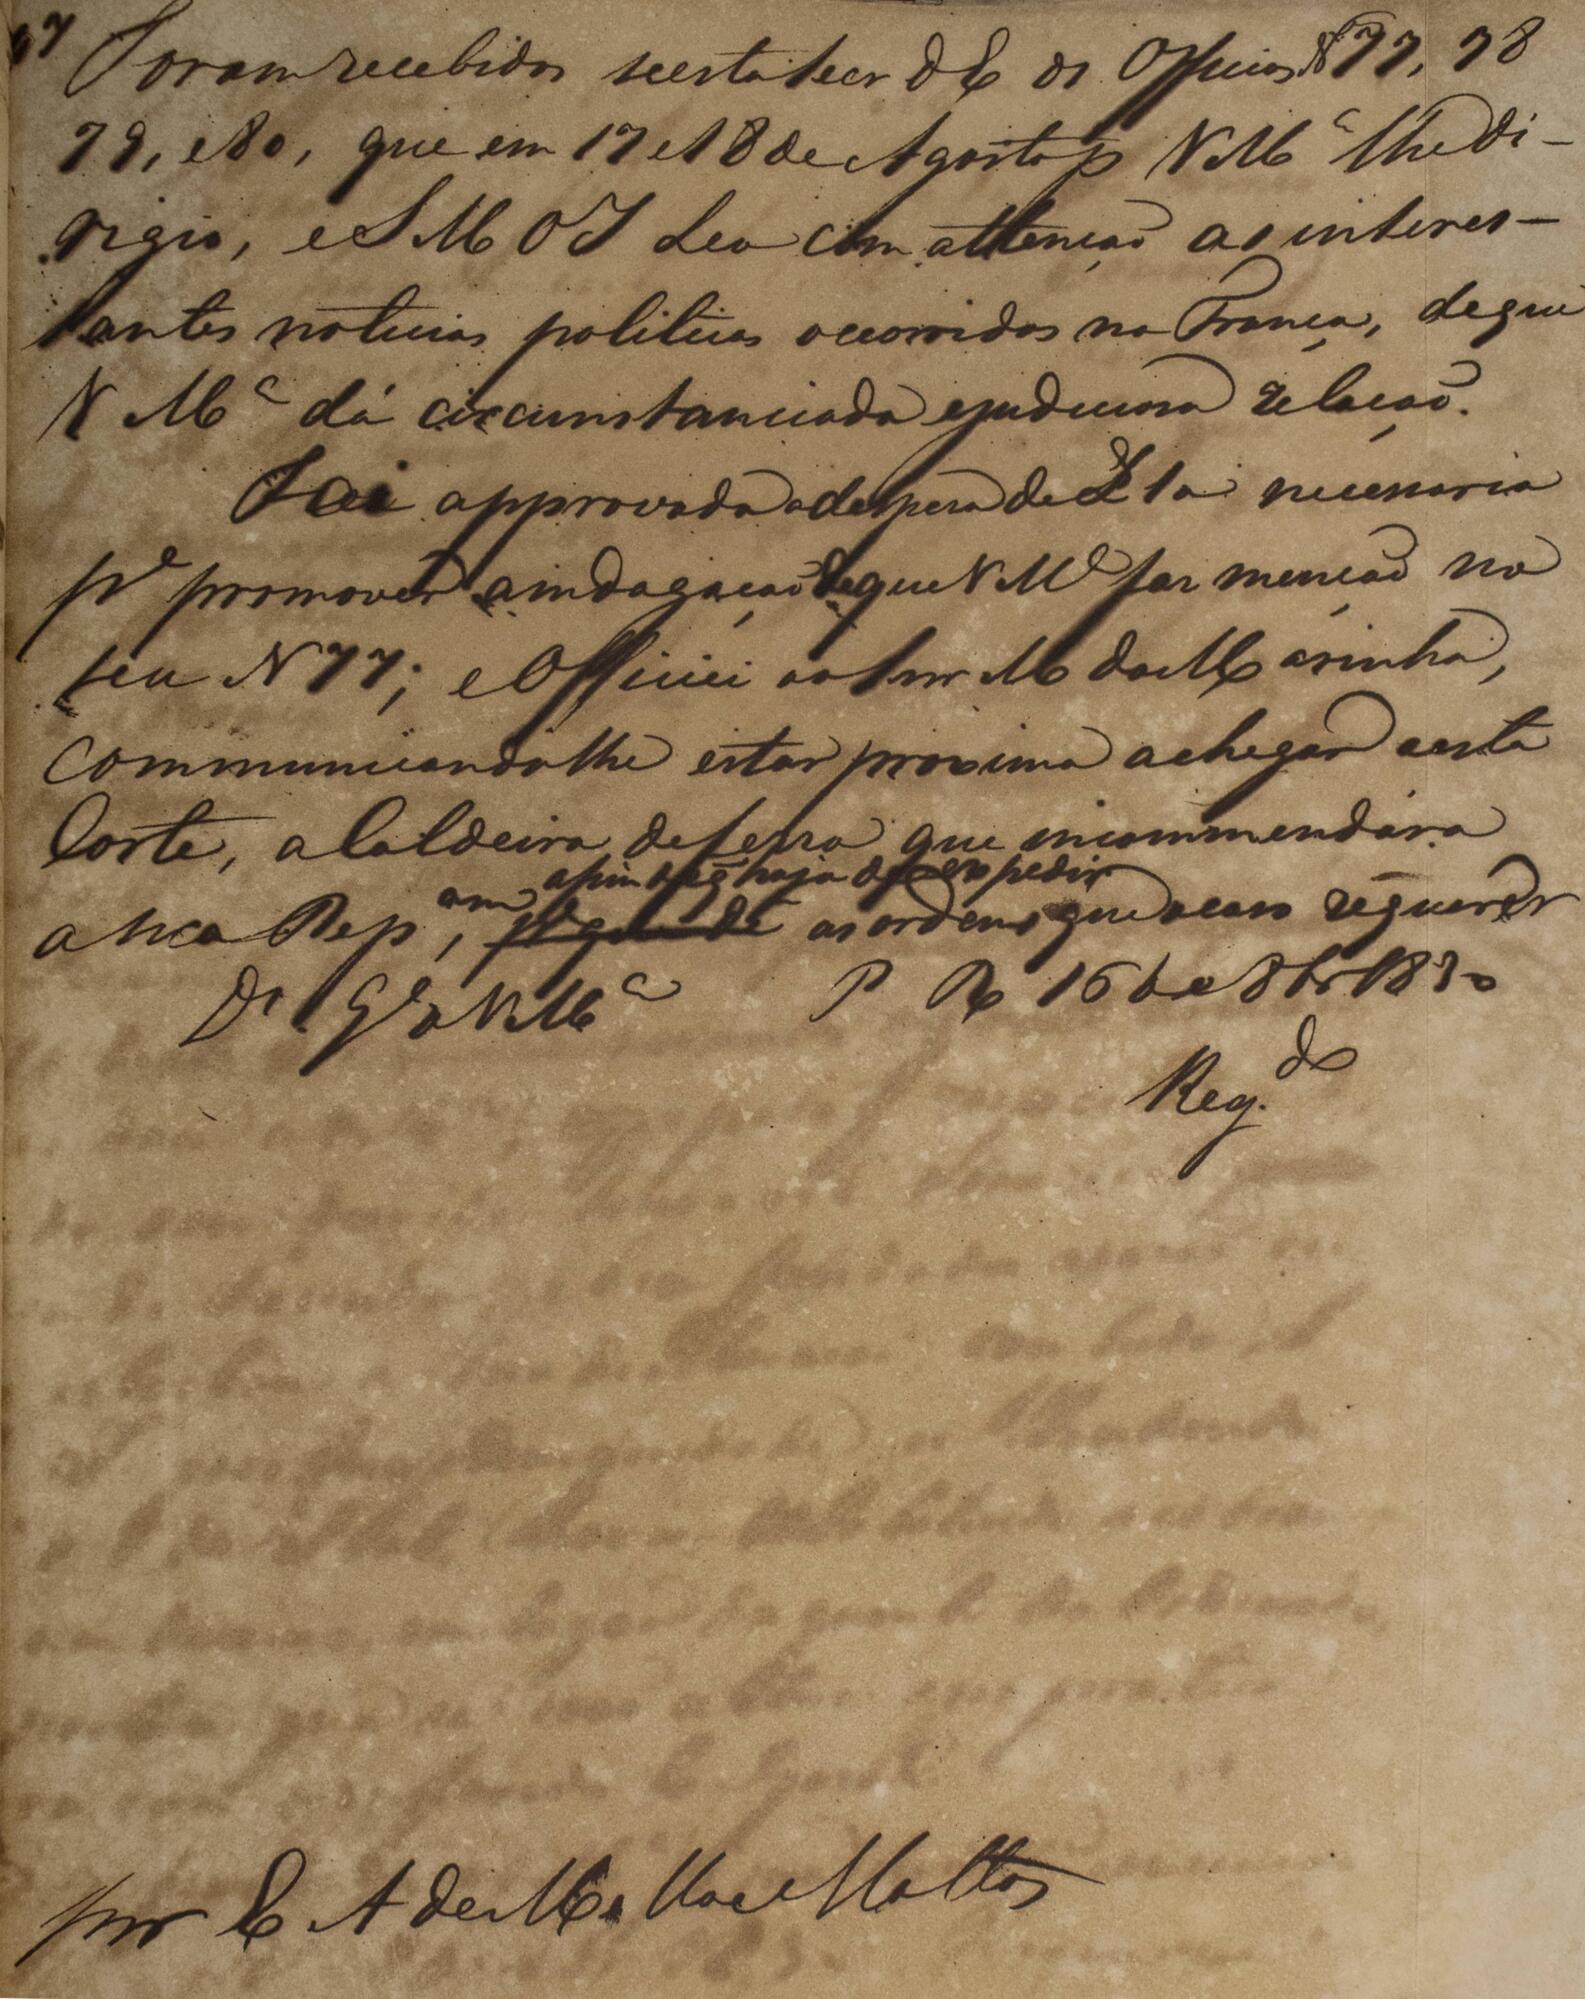 67
Foram recebidos nesta Secr d'E os Officios Nos 77, 78
79, e 80, que em 17 e 18 de Agosto p V Mce lhe di-
rigio, e S M O I Leo com attenção as interes-
santes noticias politicas occorridas na França, de que
V Mce dá circunstanciada e judiciosa relação.
Foi approvada a despesa de £ 10 necessaria
pa promover a indagação de que V Mce faz menção no
seu N 77; e Officiei ao Snr M da Marinha,
communicando lhe estar proxima a chegar a esta
Corte, a Caldeira de ferro que incommendára
a sua Repam, afim de q̃ haja de expedir
as ordens que o caso requerer
Ds Gde a V Mce P R 16 de 8br 1830
Reg.do
Snr E A de Mello e Mattos